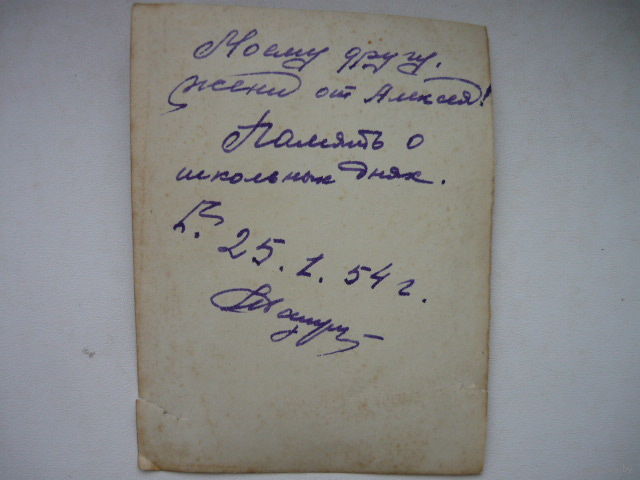 Моему другу.
жени от Алексея!
Память о
школьных днях.
Г. 25.1.54 г.